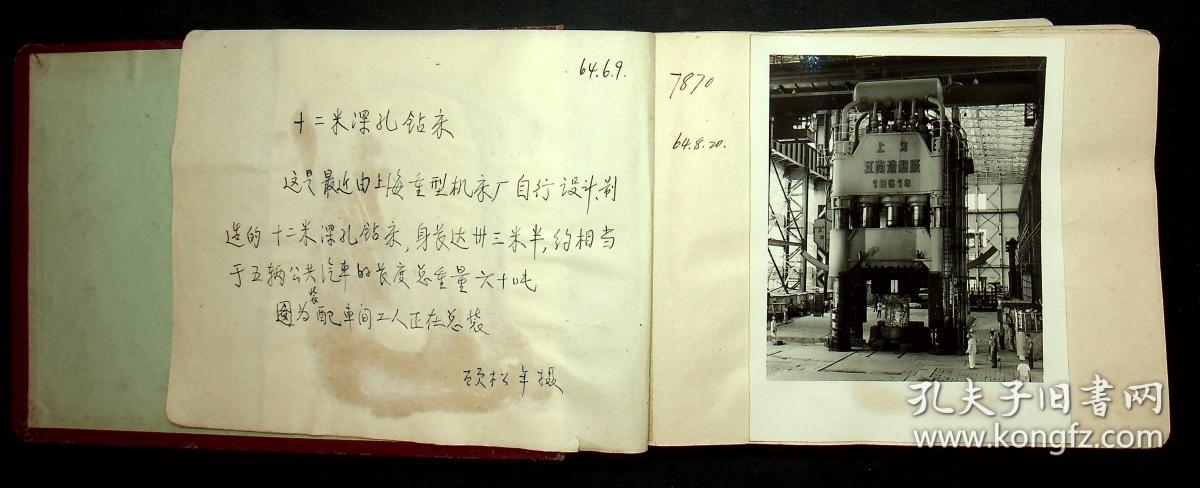 64.6.9.
十二米深孔钻床
这是最近由上海重型机床厂自行设计、制
造的十二米深孔钻床，身长达卅三米半，约相当
于五辆公共汽车的长度总重量六十吨
图为装配车间工人正在总装
顾松年摄
7870
64.8.20.
上海
江南造船厰
1961年
孔夫子旧書网
www.kongfz.com